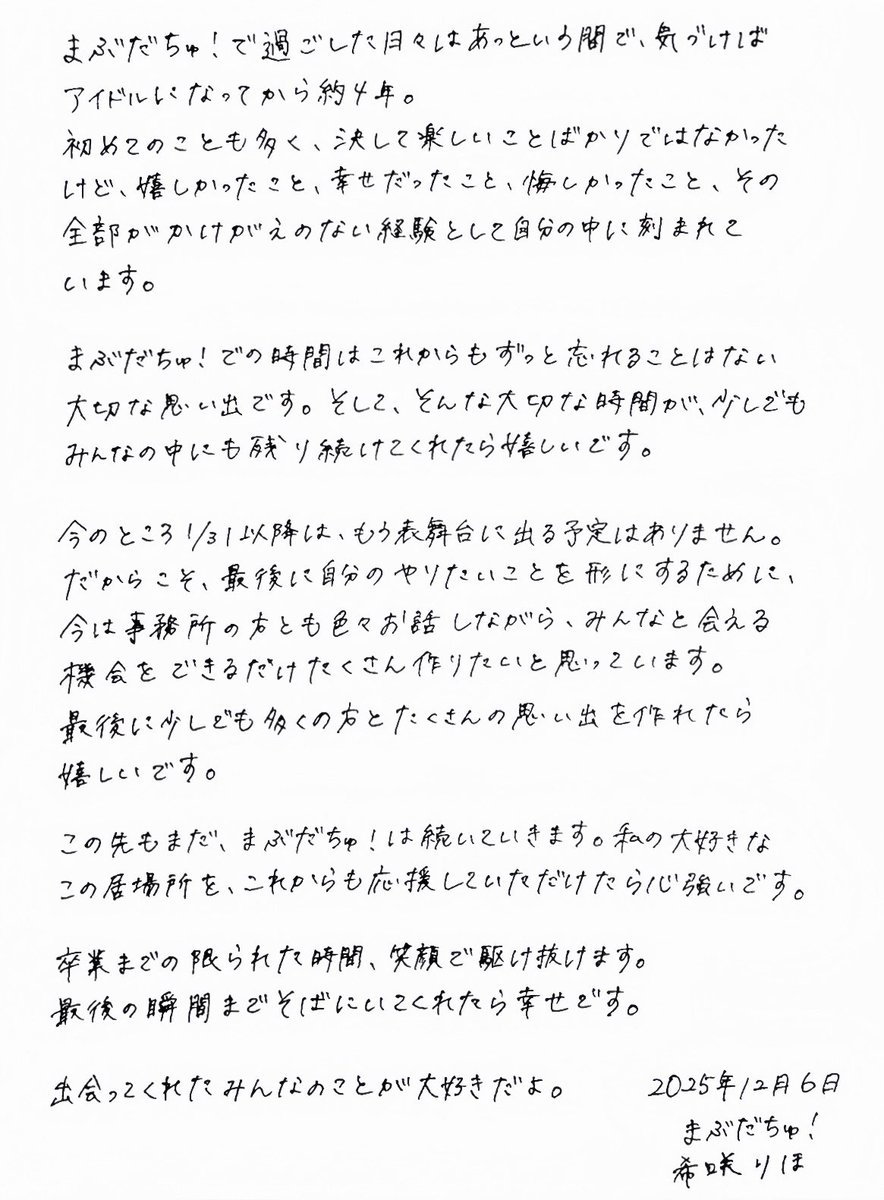 まぶだちゅ!で過ごした日々はあっという間で、気づけば
アイドルになってから約4年。
初めてのことも多く、決して楽しいことばかりではなかった
けど、嬉しかったこと、幸せだったこと、悔しかったこと、その
全部がかけがえのない経験として自分の中に刻まれて
います。
まぶだちゅ!での時間はこれからもずっと忘れることはない
大切な思い出です。そして、そんな大切な時間が、少しでも
みんなの中にも残り続けてくれたら嬉しいです。
今のところ1/31以降は、もう表舞台に出る予定はありません。
だからこそ、最後に自分のやりたいことを形にするために、
今は事務所の方とも色々お話しながら、みんなと会える
機会をできるだけたくさん作りたいと思っています。
最後に少しでも多くの方とたくさんの思い出を作れたら
嬉しいです。
この先もまだ、まぶだちゅ!は続いていきます。私の大好きな
この居場所を、これからも応援していただけたら心強いです。
卒業までの限られた時間、笑顔で駆け抜けます。
最後の瞬間までそばにいてくれたら幸せです。
出会ってくれたみんなのことが大好きだよ。
2025年12月6日
まぶだちゅ!
希咲りほ